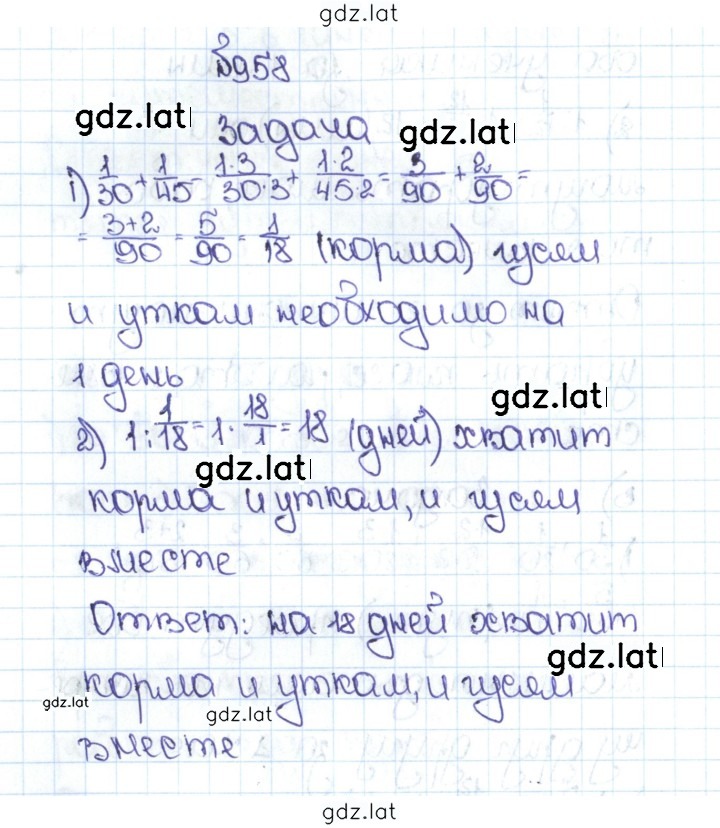 gdz.lat
№958
gdz.lat
Задача gdz.lat
1) 1/30 + 1/45 = 1·3/30·3 + 1·2/45·2 = 3/90 + 2/90 =
= 3+2/90 = 5/90 = 1/18 (корма) гусям
и уткам необходимо на
1 день
gdz.lat
2) 1 : 1/18 = 1 · 18/1 = 18 (дней) хватит
gdz.lat
корма и уткам, и гусям
вместе
Ответ: на 18 дней хватит
gdz.lat
корма и уткам, и гусям
gdz.lat gdz.lat
вместе
gdz.lat